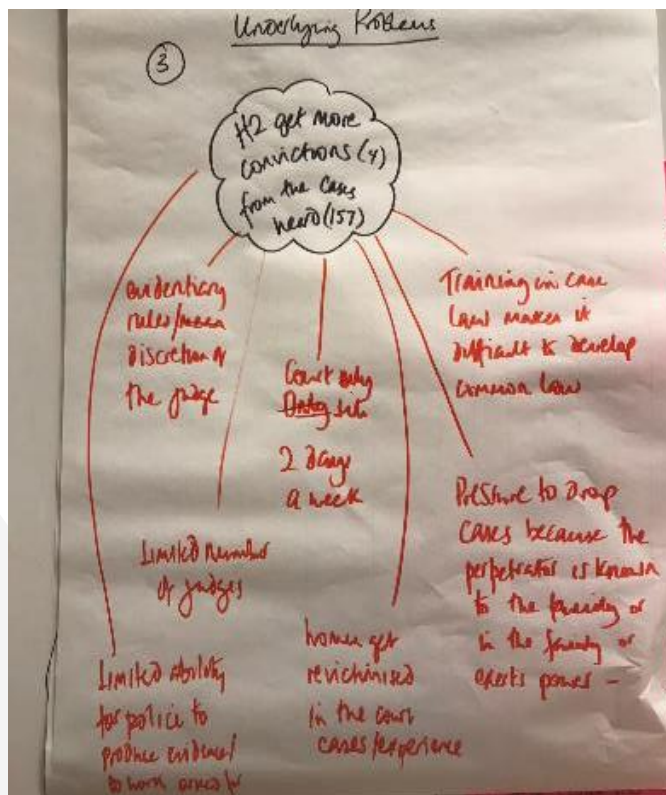 Underlying Problems
3
H2 get more
convictions (4)
from the cases
heard (157)
evidentiary
rules/
discretion of
the judge
Court only
sits
2 days
a week
Training in case
law makes it
difficult to develop
common law
Limited number
of judges
Pressure to drop
cases because the
perpetrator is known
to the family or
in the family or
exerts power -
Limited ability
for police to
produce evidence/
to work
women get
revictimised
in the court
cases/experience